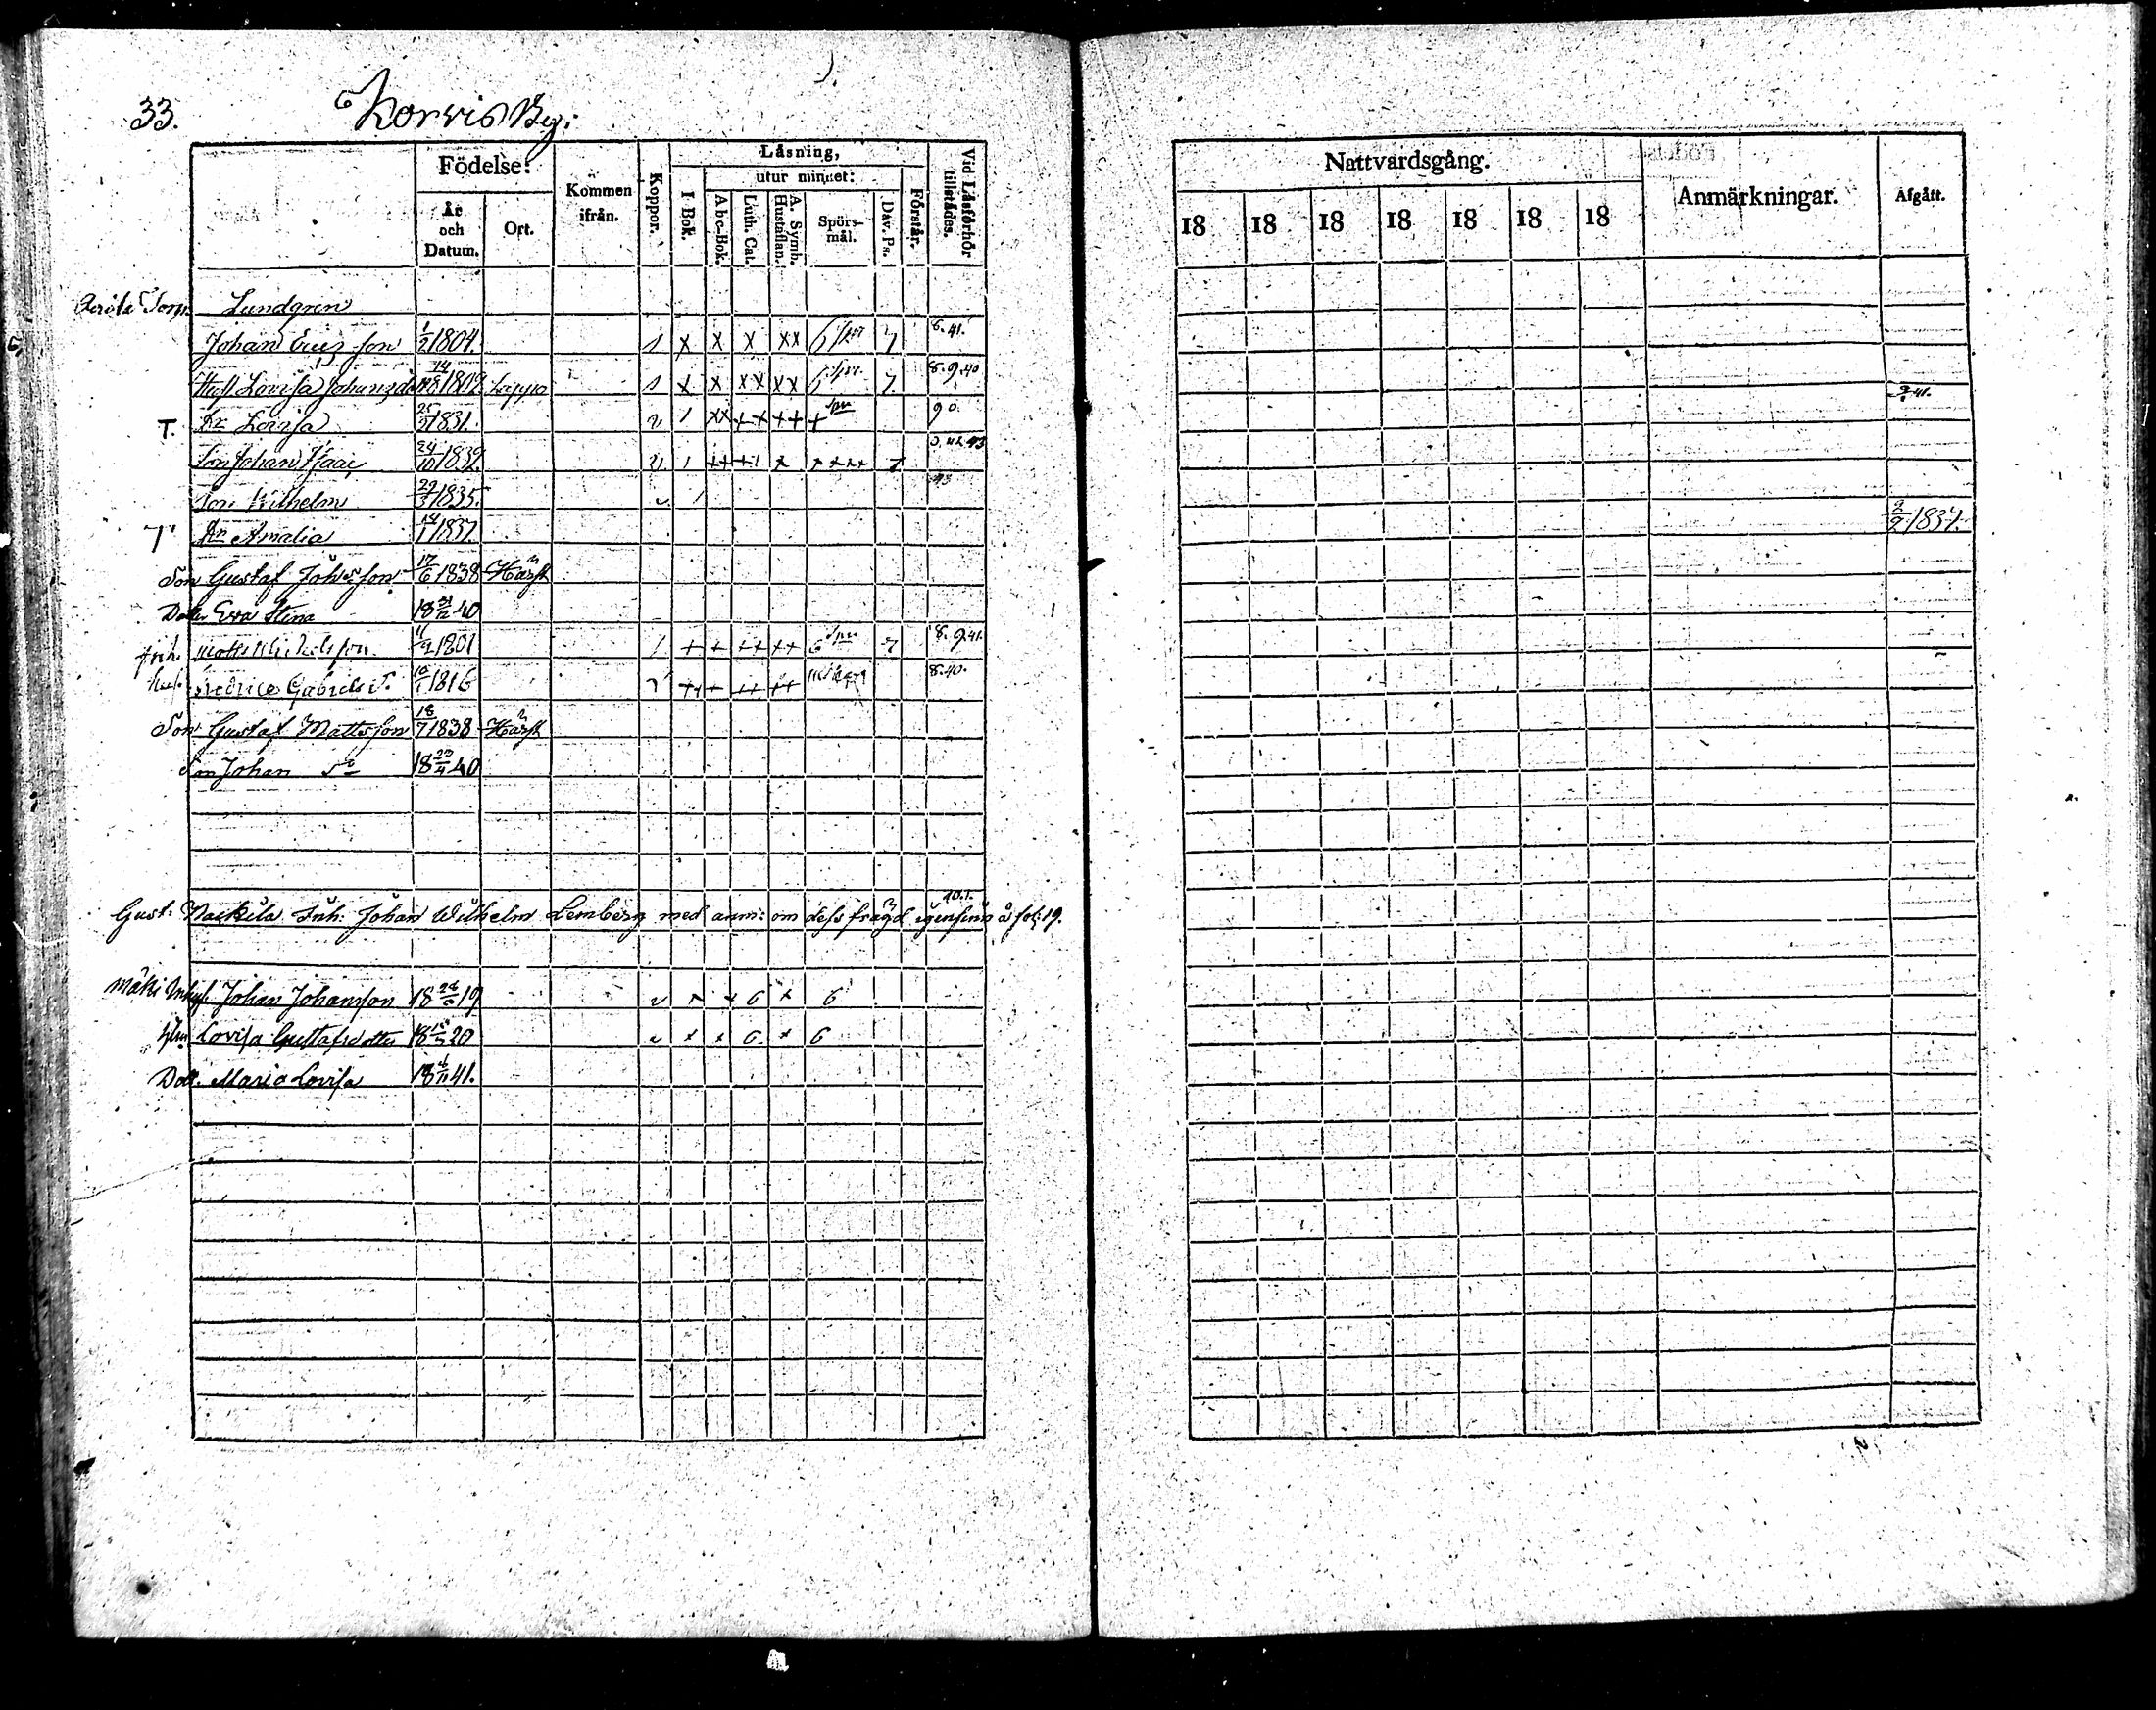 33. Korvis By:
Födelse: Kommen ifrån. Koppor. Läsning, Vid Läsförhör tillstädes.
År och Datum. Ort. I Bok. utur minnet: Förstår.
Abc-Bok. Luth. Cat. A. Symb. Hustaflan. Spörs-mål. Dav. Ps.
Torp. Lundgren
Johan Ericsson 1/2 1804. 1 x x x xx 6 spr 7 8.41.
Hust Lovisa Johansd 1809 Lappo 1 x x xx xx 6 spr. 7. 8.9.40
T. Dr Lovisa 25/3 1831. v 1 xx ++ ++ + spr 9 0
Son Johan Isaac 24/10 1832. v 1 ++ ++ x ++++ 7
Son Wilhelm 29/3 1835. v 1 43
T. Dr Amalia 14/1 1837
Son Gustaf Johsson 17/6 1838 Härst
Dotter Eva Stina 18 31/12 40
Matts Michelsson 11/9 1801 1 + + ++ ++ 6 spr 7 8.9.41.
Gabrielsd. 10/1 1816 8.40.
Son Gustaf Mattsson 18/7 1838 Härst
Son Johan do 18 23/4 40
10.1.
Gust: Nackila Inh: Johan Wilhelm Lemberg med anm: om dess frägd igenfins å fol: 19.
Mäki Inhys. Johan Johansson 18 19 v x + 6 x 6
Hu. Lovisa Gustafsdotter 18 20 v x x 6. x 6
Dott. Maria Lovisa 18 4/11 41.
Nattvardsgång. Anmärkningar. Afgått.
18 18 18 18 18 18 18
41.
2/2 1837.